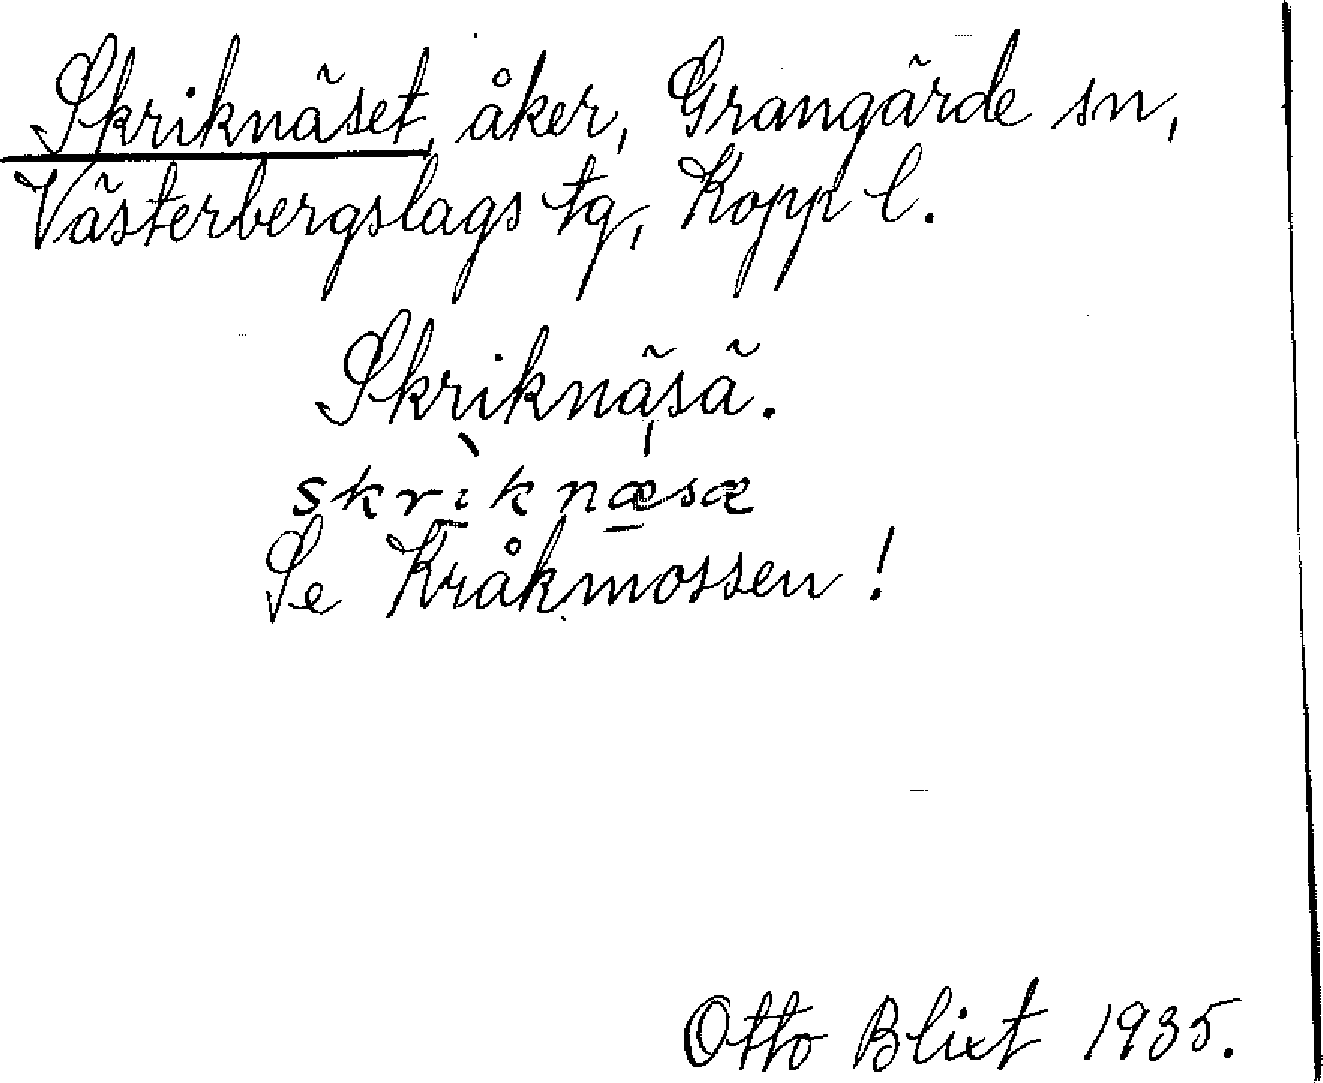 Skriknäset, åker, Grangärde sn,
Västerbergslags tg, Kopp l.
Skriknäsä.
skrìknǽsæ
Se Kråkmossen!
Otto Blixt 1935.